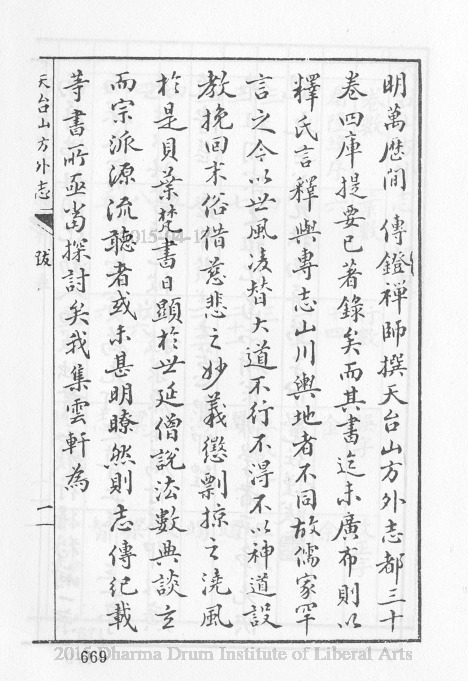 明萬歷間　傳鐙禪師撰天台山方外志都三十
卷四庫提要已著錄矣而其書迄未廣布則以
釋氏言釋與專志山川輿地者不同故儒家罕
言之今以世風凌替大道不行不得不以神道設
教挽回末俗借慈悲之妙義懲剽掠之澆風
於是貝葉梵書日顯於世延僧說法數典談玄
而宗派源流聽者或未甚明瞭然則志傳紀載
等書所亟當探討矣我集雲軒為
天台山方外志
跋
一
669
2015 Dharma Drum Institute of Liberal Arts